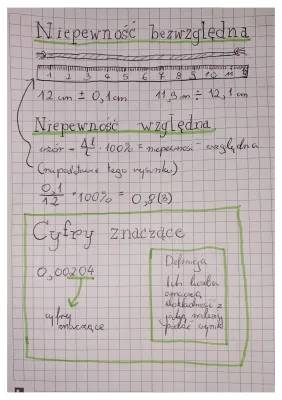 Niepewność bezwzględna
1 2 3 4 5 6 7 8 9 10 11
12 cm ± 0,1 cm 11,9 cm ÷ 12,1 cm
Niepewność względna
wzór → Δl/l · 100% = niepewność względna
(na podstawie tego rysunku)
0,1/12 · 100% = 0,8(3)
Cyfry znaczące
0,00204
cyfry
znaczące
Definicja
Ich liczba
oznacza
dokładność z
jaką należy
podać wynik